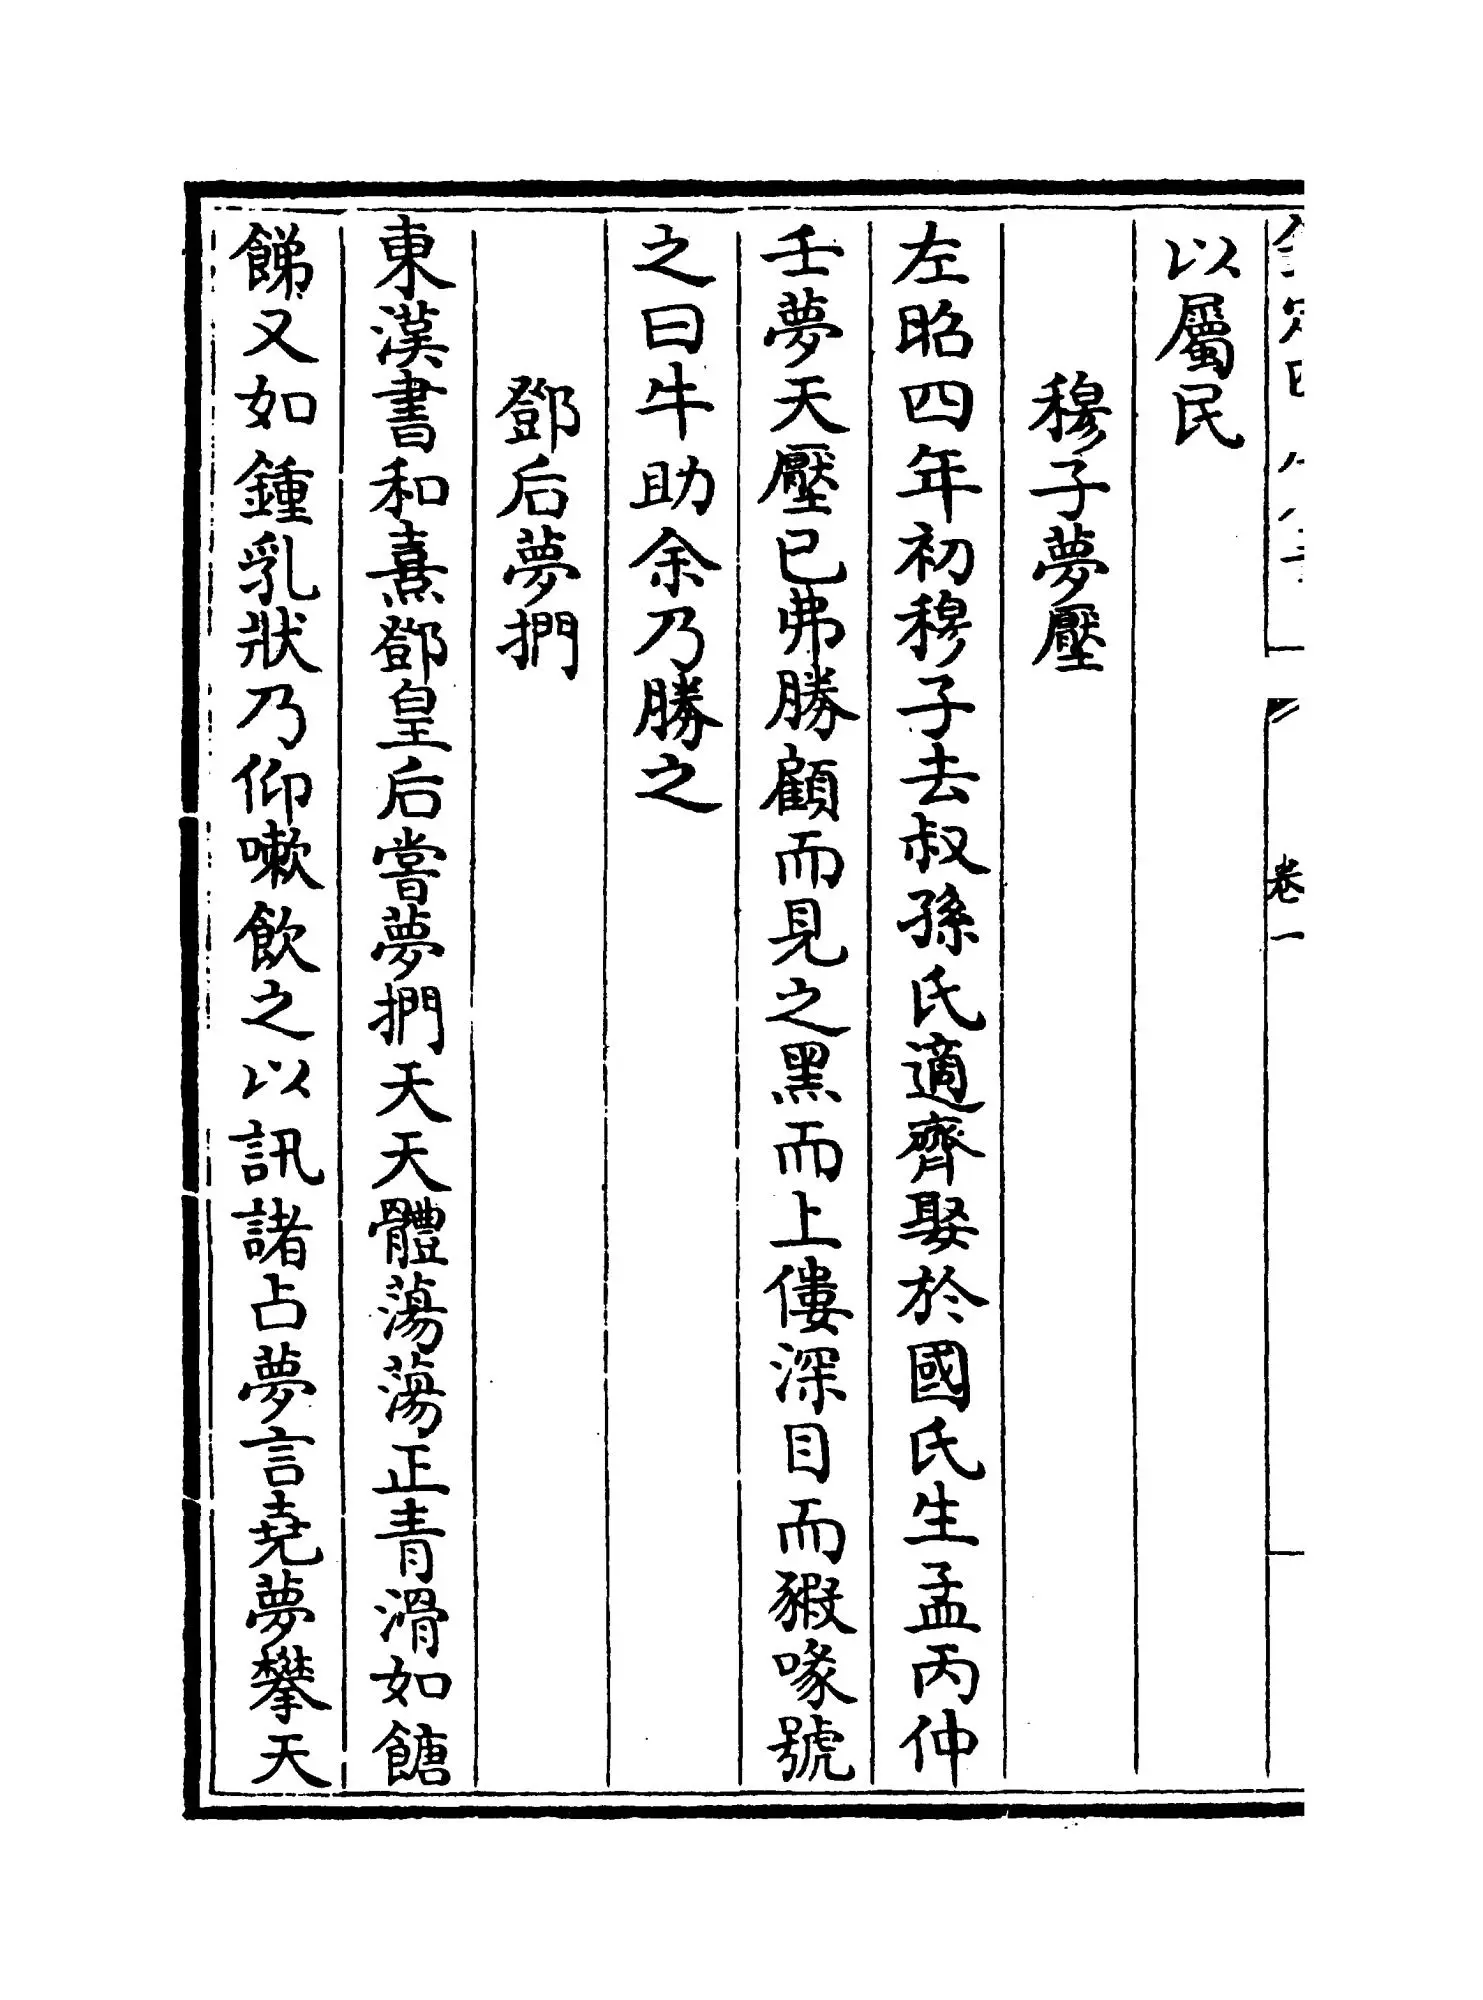 卷一
以屬民
穆子夢壓
左昭四年初穆子去叔孫氏適齊娶於國氏生孟丙仲
壬夢天壓已弗勝顧而見之黑而上僂深目而豭喙號
之曰牛助余乃勝之
鄧后夢捫
東漢書和熹鄧皇后嘗夢捫天天體蕩蕩正青滑如餹
餳又如鍾乳狀乃仰嗽飲之以訊諸占夢言堯夢攀天